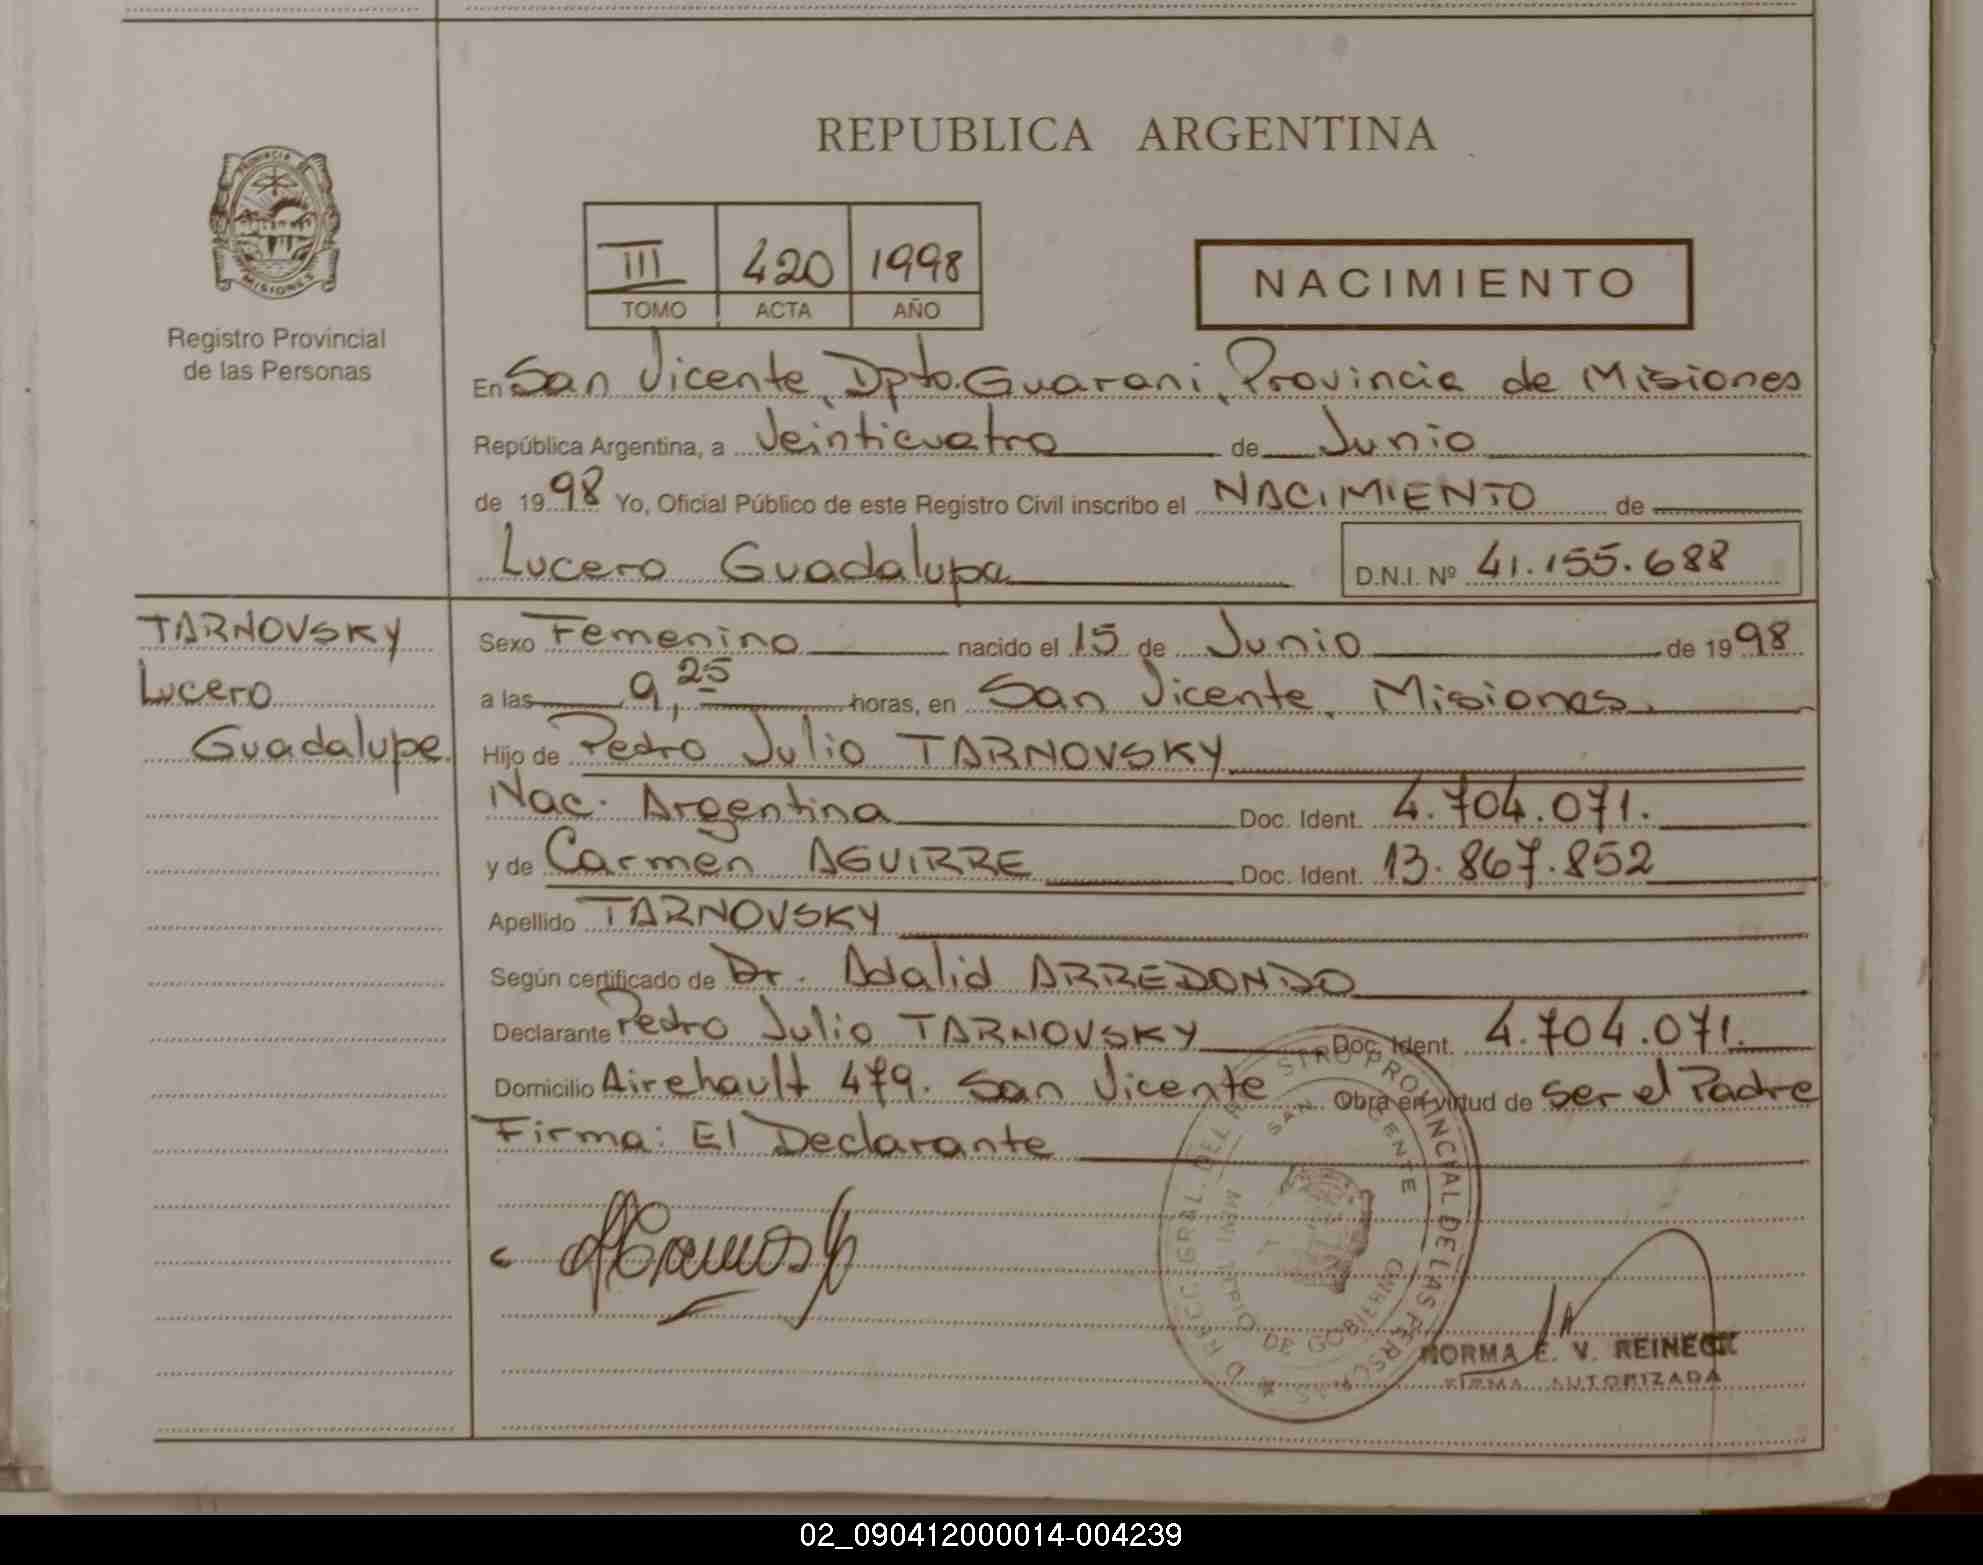 REPUBLICA ARGENTINA
PROVINCIA DE
MISIONES
Registro Provincial
de las Personas
III 420 1998
TOMO ACTA AÑO
NACIMIENTO
En San Vicente, Dpto. Guarani, Provincia de Misiones
República Argentina, a Veinticuatro de Junio
de 1998 Yo, Oficial Público de este Registro Civil inscribo el NACIMIENTO de
Lucero Guadalupe D.N.I. Nº 41.155.688
TARNOVSKY
Lucero
Guadalupe.
Sexo Femenino nacido el 15 de Junio de 1998
a las 9,25 horas, en San Vicente, Misiones.
Hijo de Pedro Julio TARNOVSKY
Nac. Argentina Doc. Ident. 4.704.071.
y de Carmen AGUIRRE Doc. Ident. 13.867.852
Apellido TARNOVSKY
Según certificado de Dr. Adalid ARREDONDO
Declarante Pedro Julio TARNOVSKY Doc. Ident. 4.704.071.
Domicilio Airehault 479. San Vicente Obra en virtud de ser el Padre
Firma: El Declarante
STRO PROVINCIAL DE LAS PERSONAS
SAN VICENTE
MINISTERIO DE GOBIERNO
NORMA E. V. REINECK
FIRMA AUTORIZADA
02_090412000014-004239